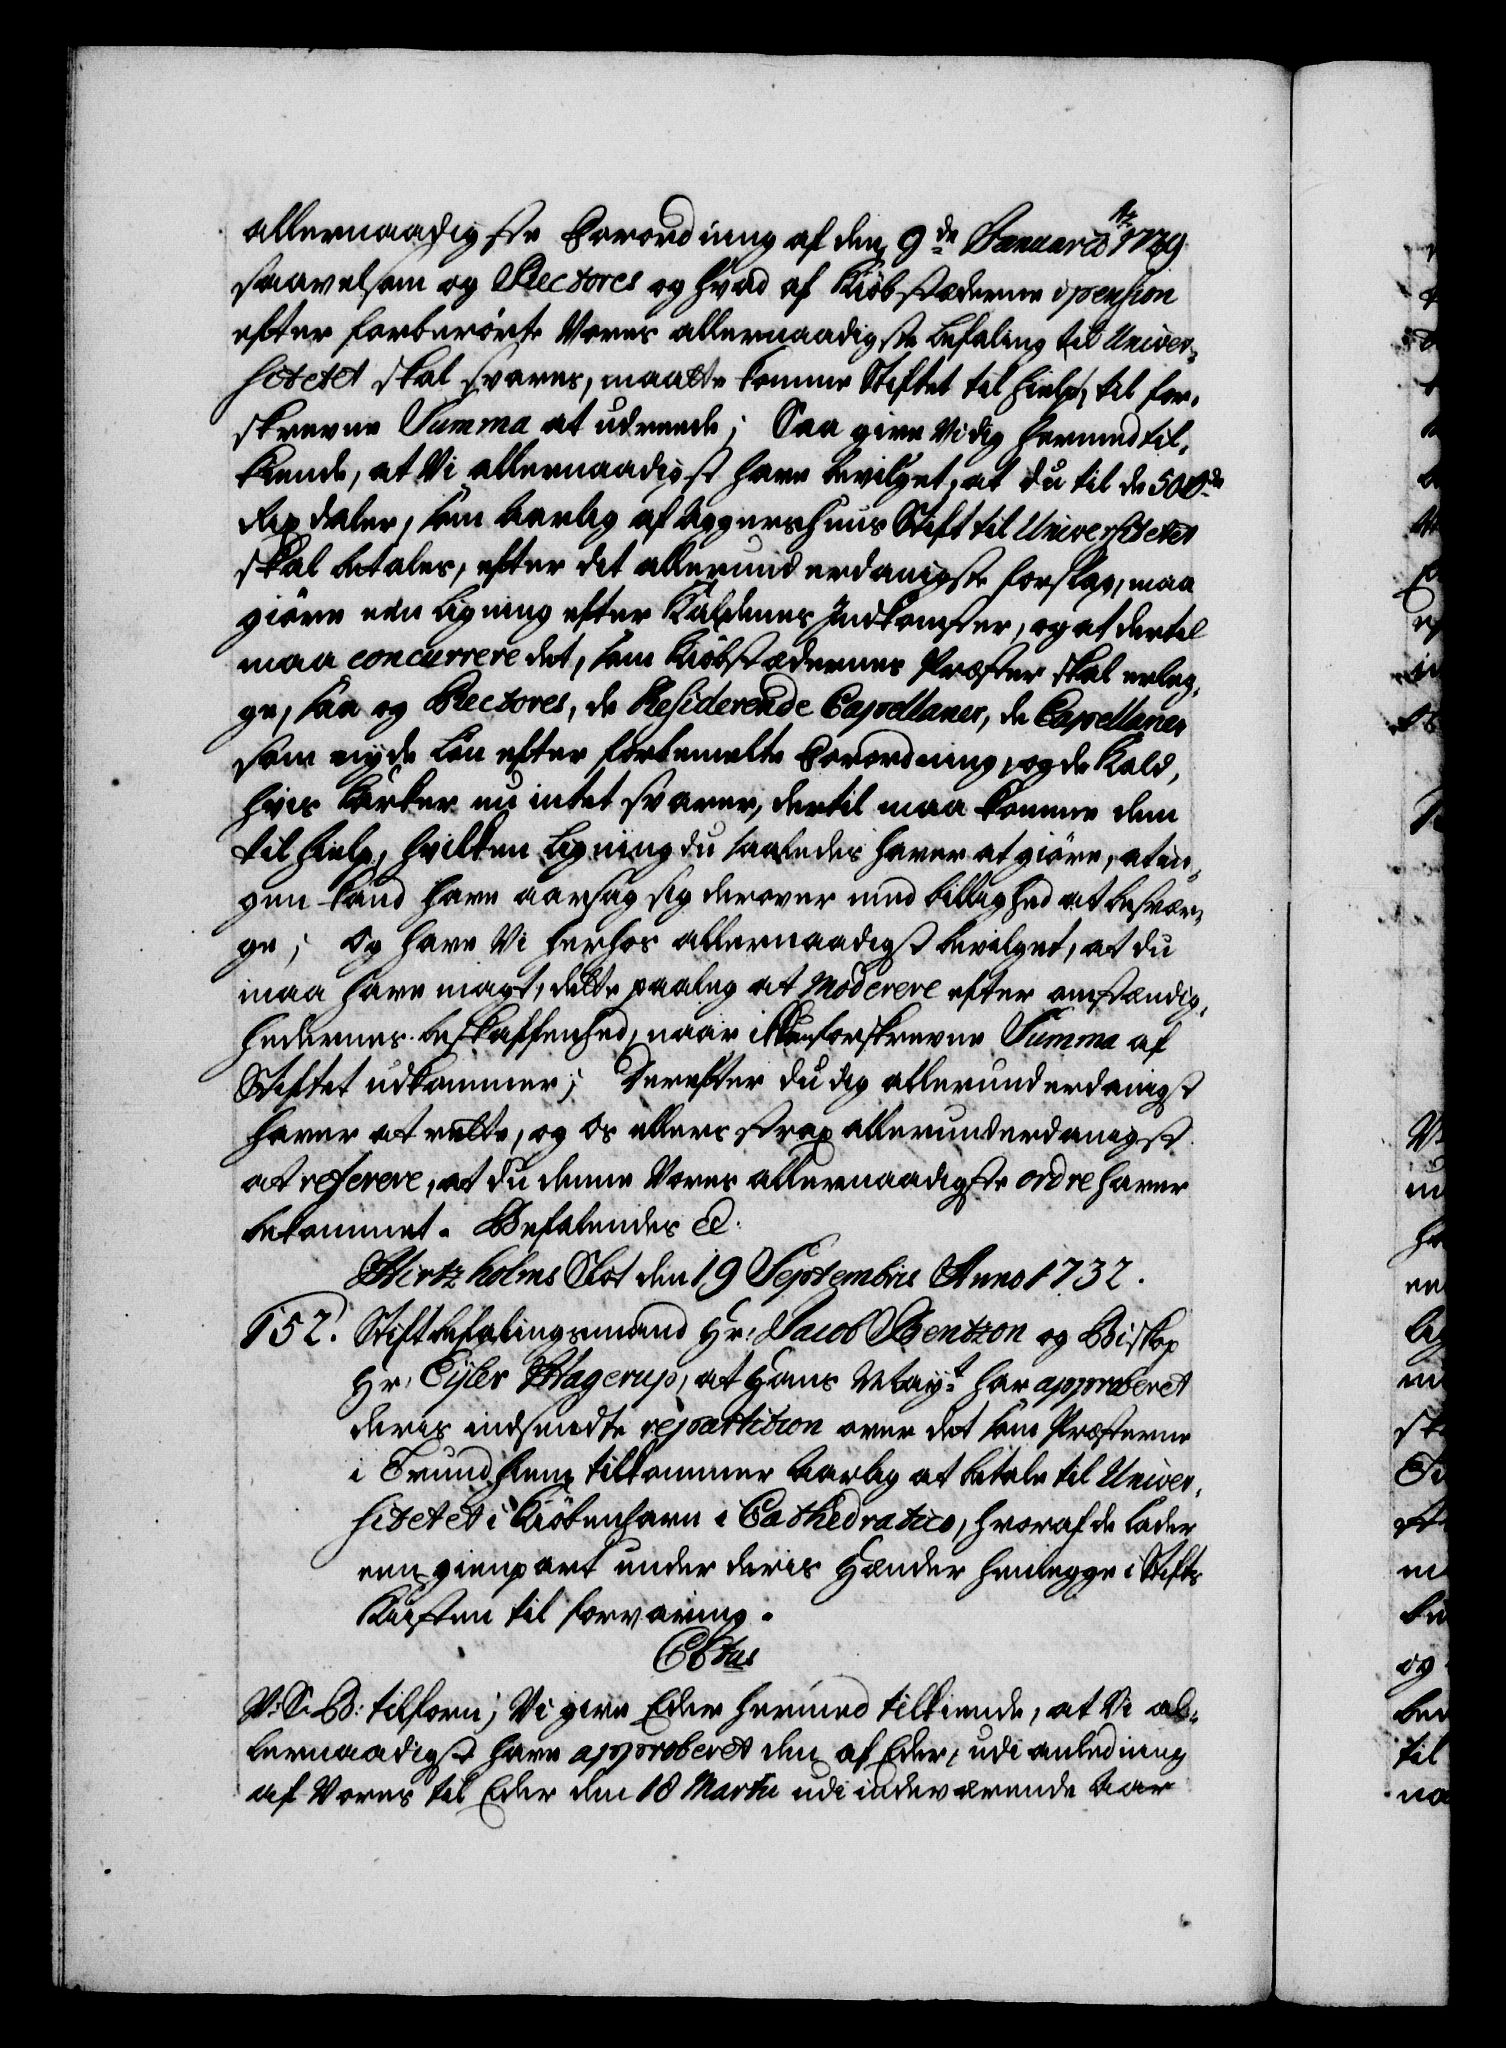 allernaadigste Forordning af den 9de Januarii Ao 1739
saavelsom og Rectores og hvad af Kiøbstæderne i pension
efter forberørte Vores allernaadigste befaling til Univer-
sitetet skal svares, maatte komme Stiftet til hielp, til for-
skrevne Summa at udreede; Saa give Vi dig hermed til-
kiende, at Vi allernaadigst have bevilget, at du til de 500de
Rixdaler, som aarlig af Aggershuus Stift til Universitetet
skal betales, efter dit allerunderdanigste forslag, maa
giøre een Ligning efter Kaldenes Indkomster, og at dertil
maa concurrere det, som Kiøbstædernes Præster skal erleg-
ge, saa og Rectores, de Residerende Capellaner, de Capellaner
som nyde Løn efter forbemelte Forordning, og de Kald,
hvis Kirker nu intet svarer, dertil maa komme dem
til hielp, hvilken Ligning du saaledes haver at giøre, at in-
gen kand have aarsag sig derover med billighed at besvær-
ge; og have Vi herhos allernaadigst bevilget, at du
maa have magt, dette paaleg at moderere efter omstændig-
hedernes beskaffenhed, naar ikkun forskrevne Summa af
Stiftet udkommer; Derefter du dig allerunderdanigst
haver at rette, og os ellers strax allerunderdanigst
at referere, at du denne Vores allernaadigste ordre haver
bekommet. Befalendes etc.
Hirtzholms Slot den 19 Septembris Anno 1732.
152. Stiftbefalingsmand Hr: Jacob Bentzon og Biskop
Hr: Eyler Hagerup, at Hans Mayt: har approberet
deris indsendte repartition over det som Præsterne
i Trundhiem tilkommer aarlig at betale til Univer-
sitetet i Kiøbenhavn i Cathedratico, hvoraf de lader
een gienpart under deris Hænder henlegge i Stifts
Kiisten til forvaring.
C6tus
V: S: B: tilforn; Vi give Eder hermed tilkiende, at Vi al-
lernaadigst have approberet den af Eder, udi anledning
af Vores til Eder den 18 Martii udi indeværende Aar